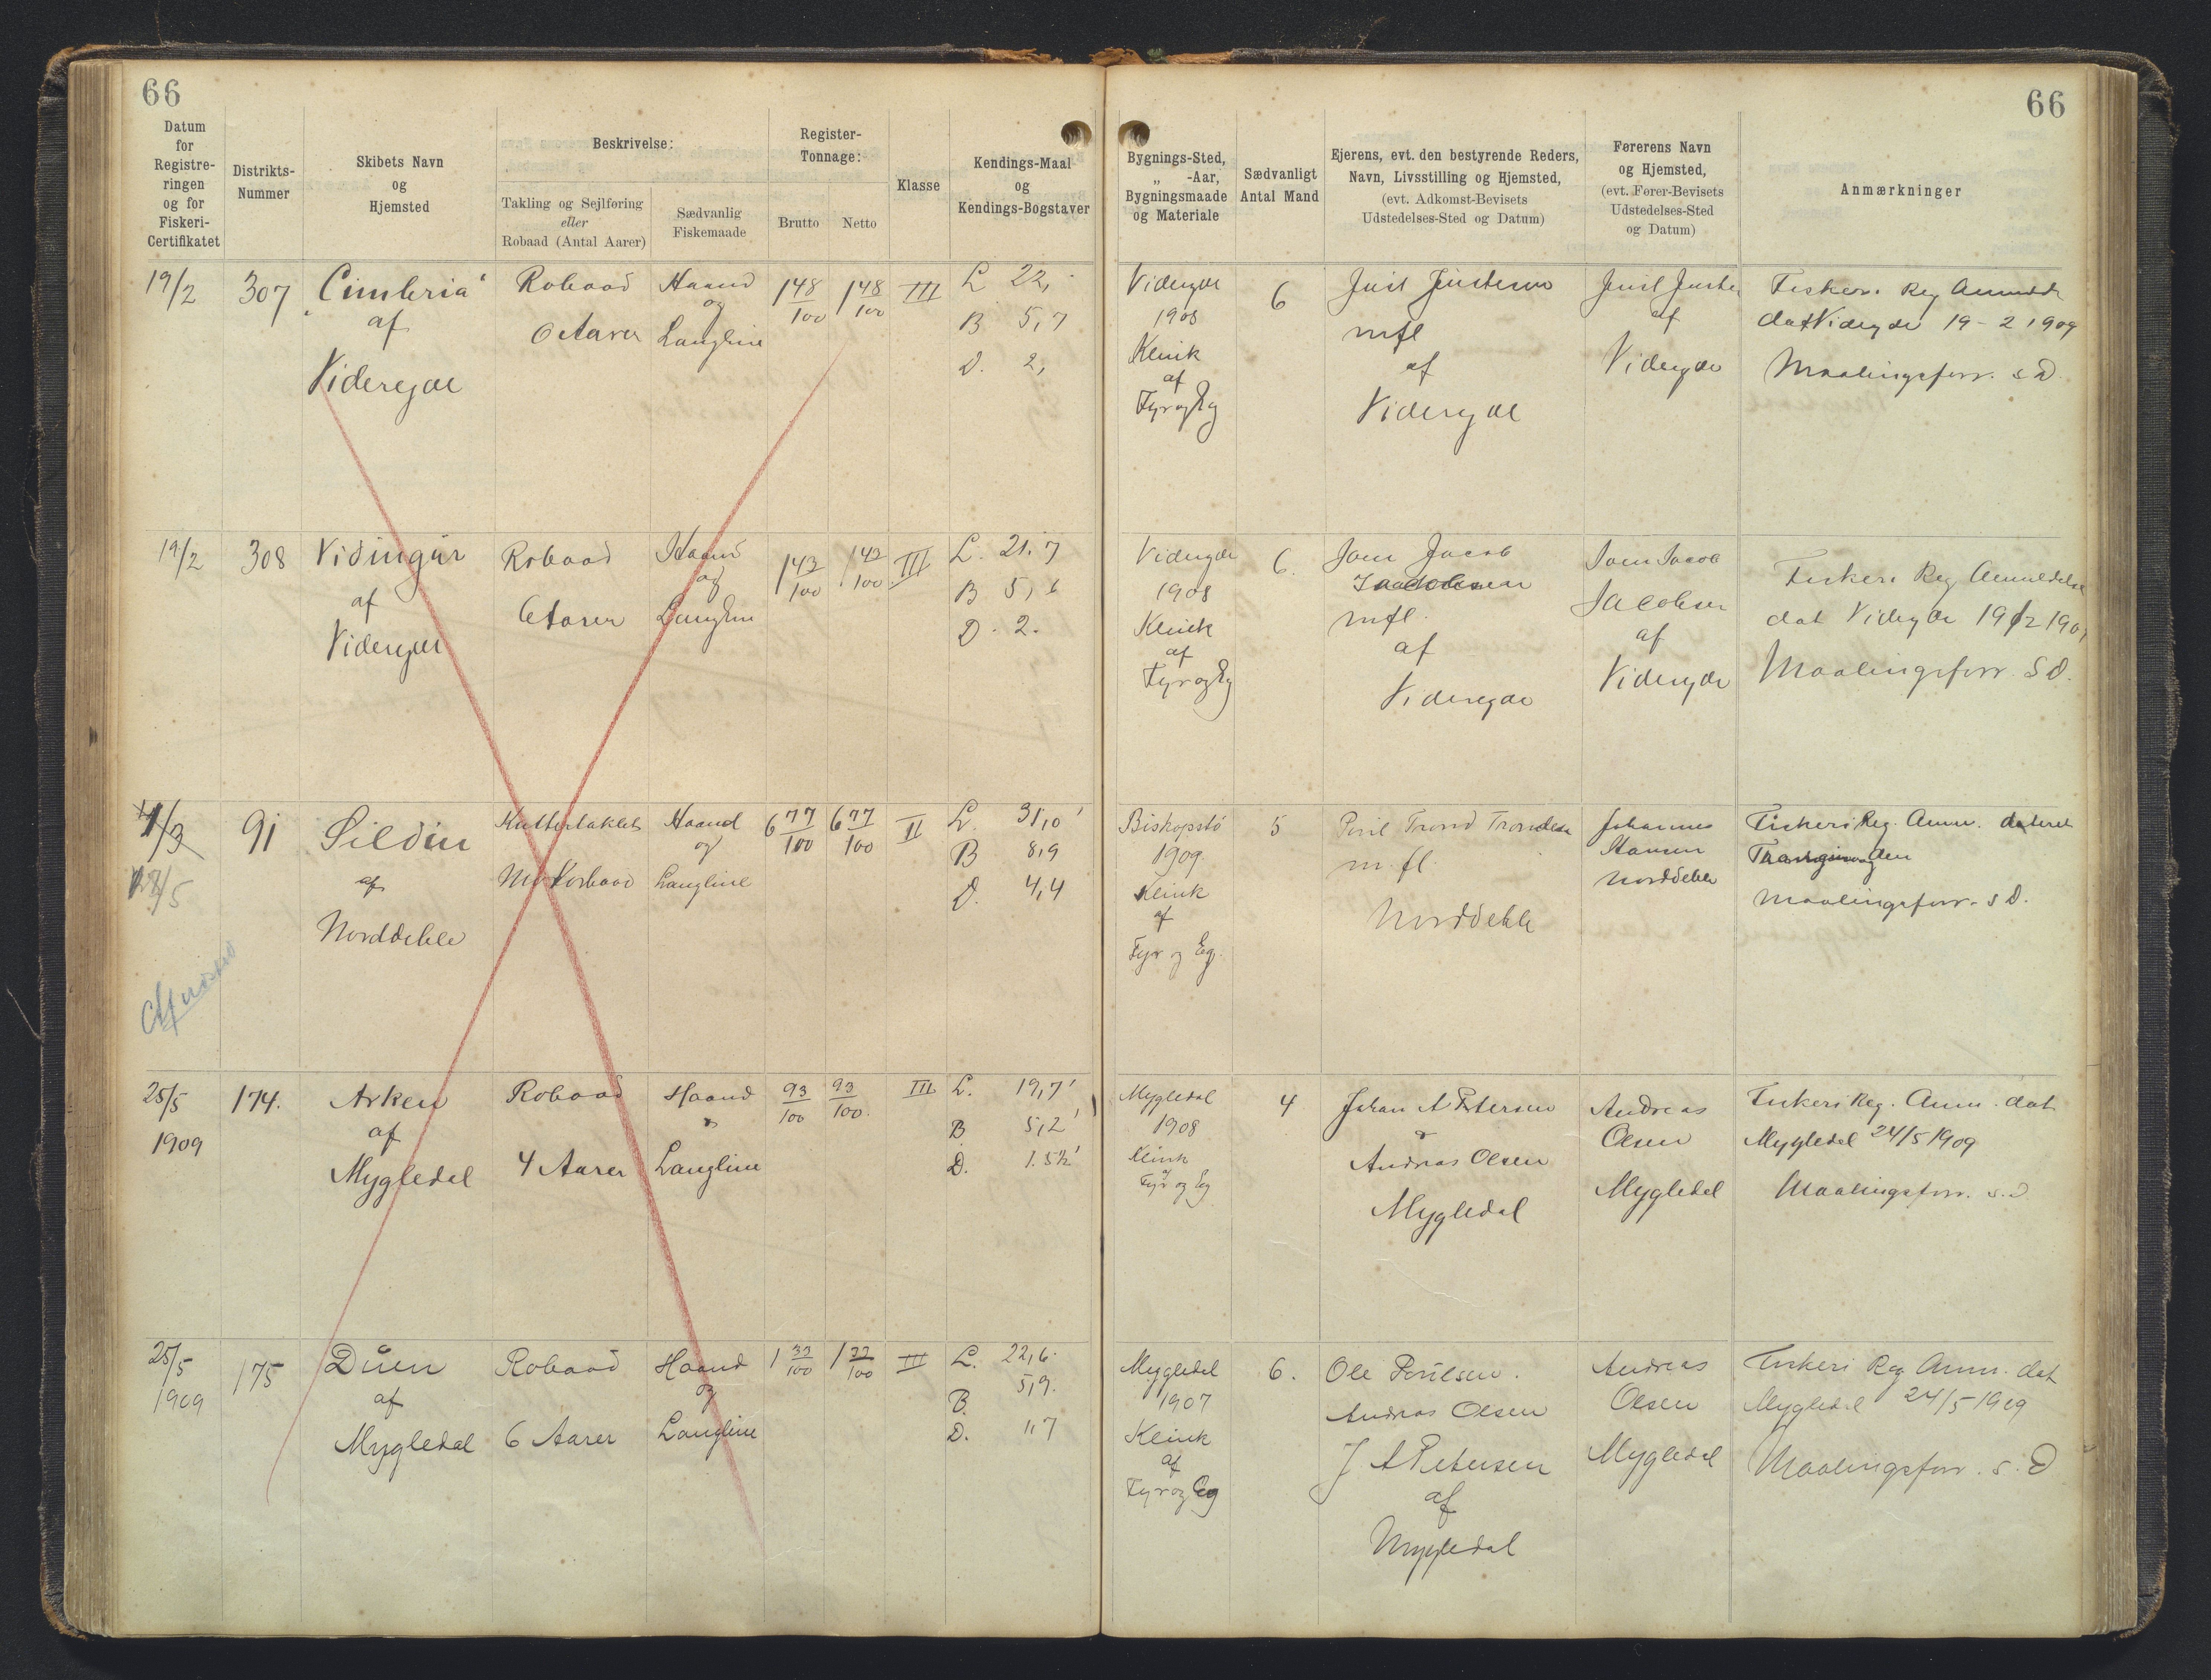 66
66
Datum
for
Registre-
ringen
og for
Fiskeri-
Certifikatet
Distrikts-
Nummer
Skibets Navn
og
Hjemsted
Beskrivelse:
Takling og Sejlføring
eller
Robaad (Antal Aarer)
Sædvanlig
Fiskemaade
Register-
Tonnage:
Brutto
Netto
Klasse
Kendings-Maal
og
Kendings-Bogstaver
Bygnings-Sted,
„ -Aar,
Bygningsmaade
og Materiale
Sædvanligt
Antal Mand
Ejerens, evt. den bestyrende Reders,
Navn, Livsstilling og Hjemsted,
(evt. Adkomst-Bevisets
Udstedelses-Sted og Datum)
Førerens Navn
og Hjemsted,
(evt. Fører-Bevisets
Udstedelses-Sted
og Datum)
Anmærkninger
19/2
307
"Cimbria"
af
Viderejde
Robaad
6 Aarer
Haand
og
Langline
1 48/100
1 48/100
III
L 22,
B 5,7
D. 2,
1908
Klink
af
Fyr og Eg
6
mfl
af
af
19-2 1909
Maalingsforr. s D.
19/2
308
af
Robaad
6 Aarer
Haand
og
1 43/100
1 43/100
III
L. 21,7
B 5,6
D. 2.
1908
Klink
af
Fyr og Eg
6.
Joen Jacob
mfl.
af
Joen Jacob
Jacobsen
af
Maalingsforr. S D.
91
af
Norddeble
Haand
og
Langline
6 77/100
6 77/100
II
L. 31,10'
B 8,9
D. 4,4
Biskopstø
1909.
Klink
af
Fyr og Eg.
5
m. fl.
Norddeble
Johannes
Hansen
Norddeble
Fiskeri Reg. Anm. dateret
Maalingsforr. s D.
25/5
1909
174.
Arken
af
Mygledal
Robaad
4 Aarer
Haand
Langline
93/100
93/100.
III
L. 19,7'
B. 5,2'
D. 1.5½'
Mygledal
1908
Klink
af
Fyr og Eg
4
Johan A Petersen
Andreas Olsen
Mygledal
Andreas
Olsen
Mygledal
Fiskeri Reg. Anm. dat
Mygledal 24/5 1909
Maalingsforr. s. D
25/5
1909
175
Duen
af
Mygledal
Robaad
6 Aarer
Haand
og
Langline
1 33/100
1 33/100
III
L. 22,6.
B. 5,9.
D. 1,7
Mygledal
1907
Klink
af
Fyr og Eg
6.
Ole Poulsen.
Andreas Olsen
J A Petersen
af
Mygledal
Andreas
Olsen
Mygledal
Fiskeri Reg Anm. dat
Mygledal 24/5 1909
Maalingsforr. s. D